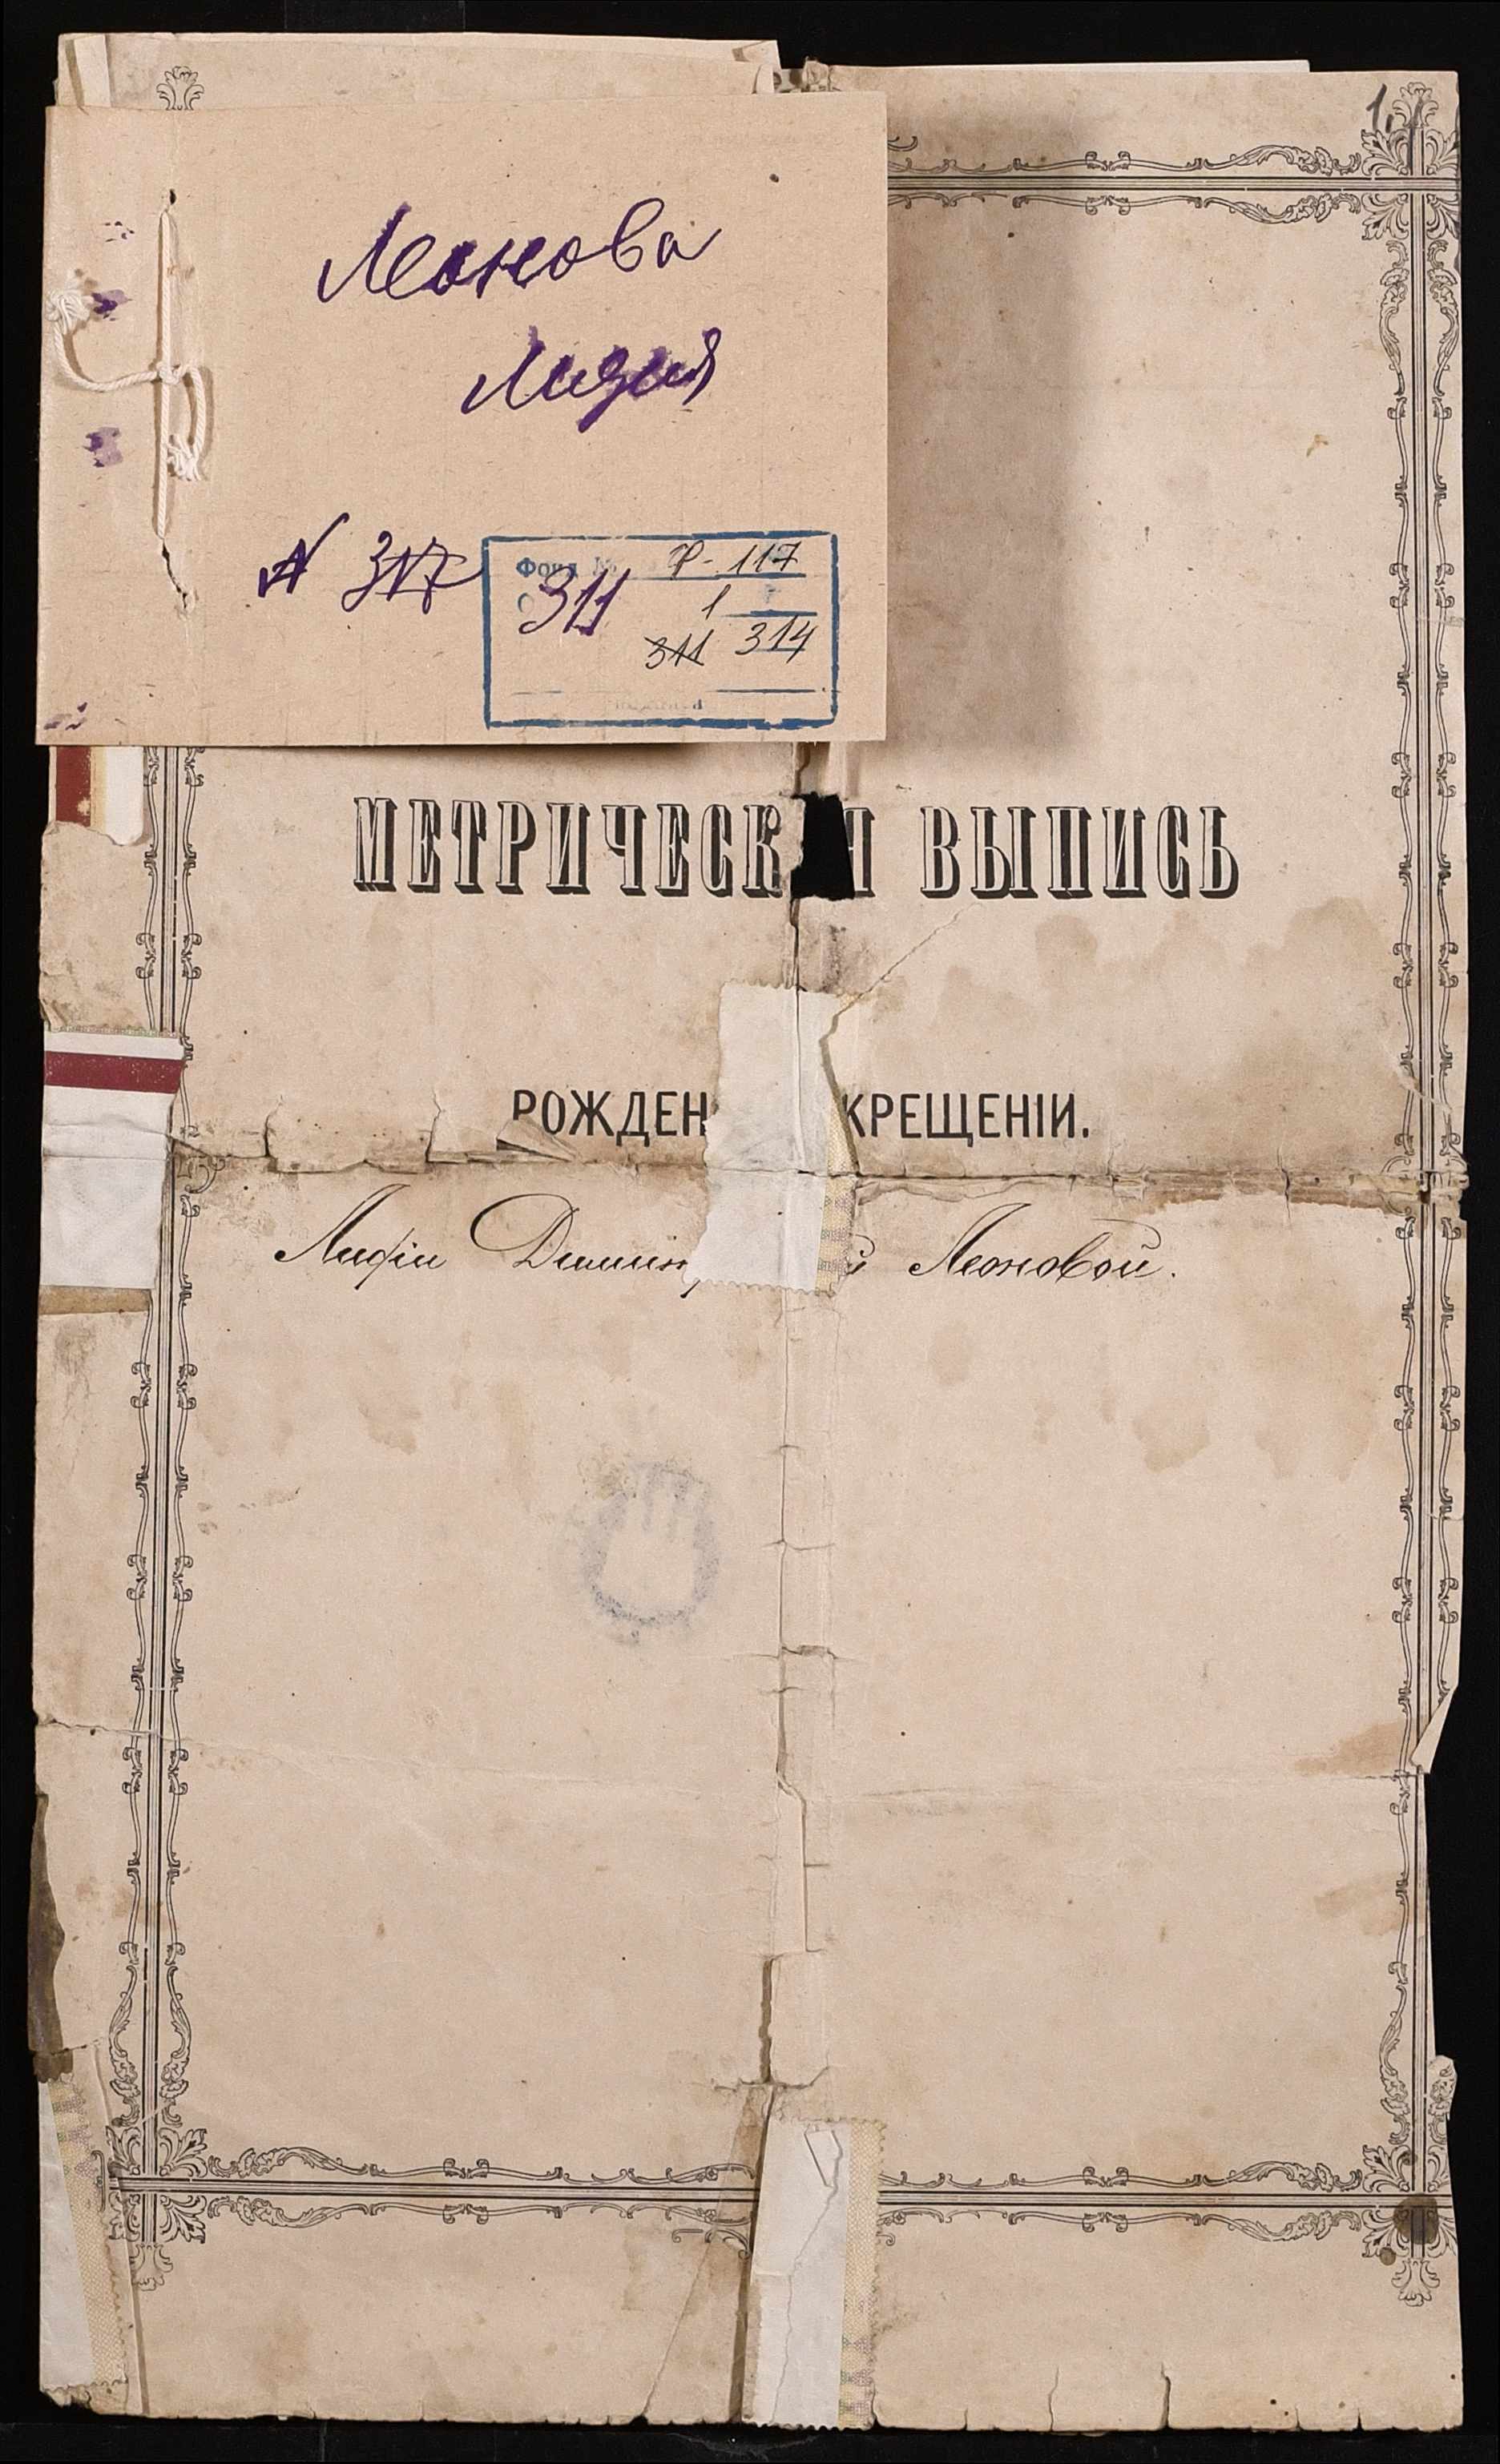 1.
Леонова
Лидия
№ 317
Фонд № Ф-117
311 1
311 314
МЕТРИЧЕСК Я ВЫПИСЬ
РОЖДЕН КРЕЩЕНІИ.
Лидіи Димит й Леоновой.